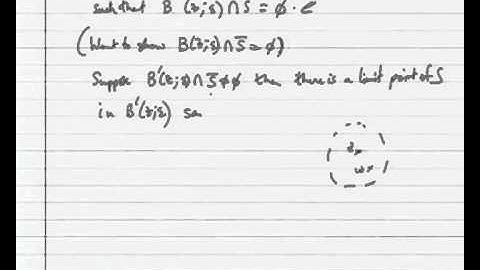 such that B'(z;ε) ∩ S = ∅.
(Want to show B(z;ε) ∩ S̅ = ∅)
Suppose B'(z;ε) ∩ S̅ ≠ ∅ then there is a limit point of S
in B'(z;ε) sa
z
w